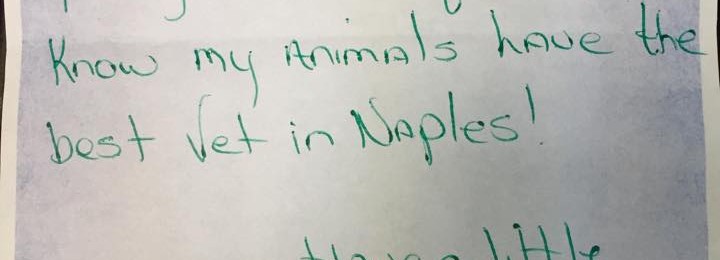 Know my Animals have the
best Vet in Naples!
little